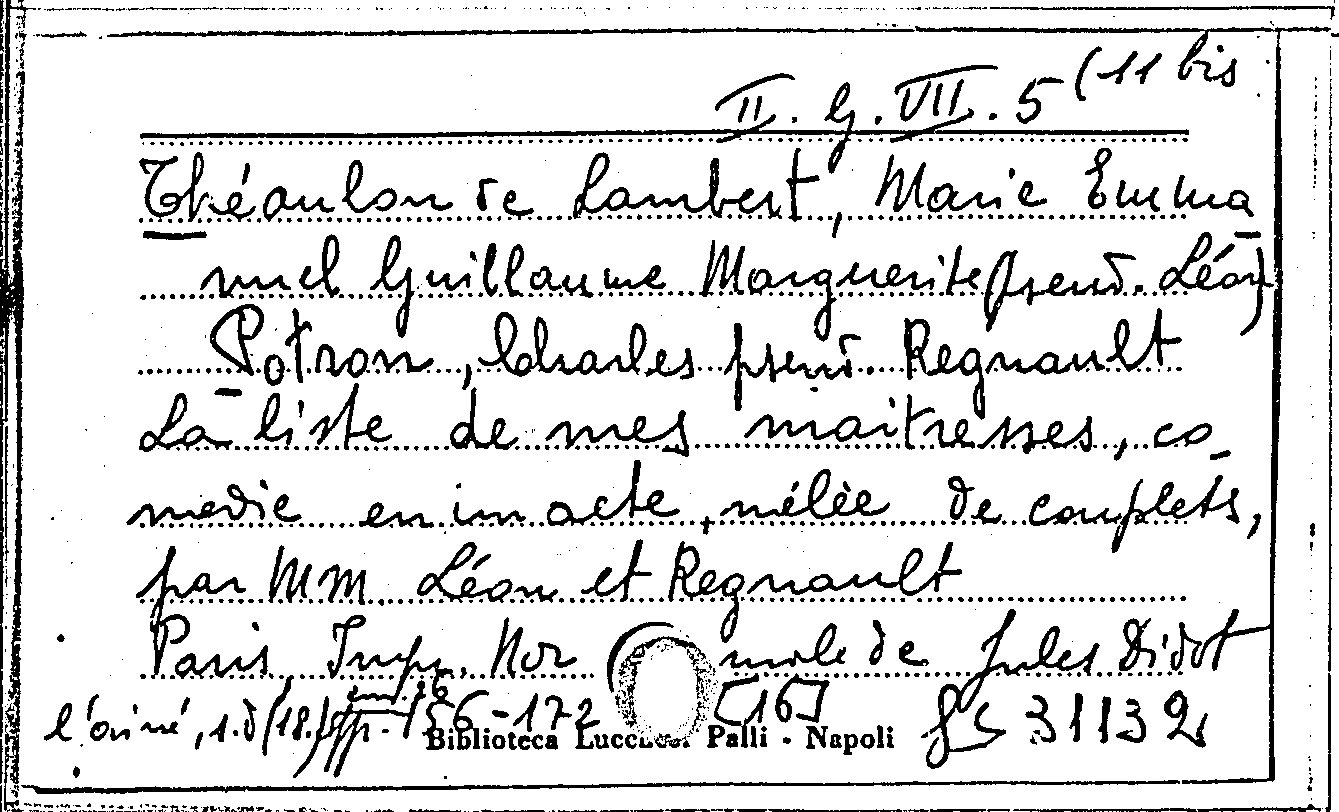 II. G. VII. 5 (11 bis
Théaulon de Lambert, Marie Emma-
nuel Guillaume Marguerite (pseud. Léon)
Potron, Charles pseud. Regnault
La liste de mes maitresses, co-
medie en un acte, mêlée de couplets,
par MM Léon et Regnault
Paris, Imp. Nor male de Jules Didot
l'ainé, s.d (18..) pp. 156-172 [16] 31132
Biblioteca Lucchesi Palli - Napoli